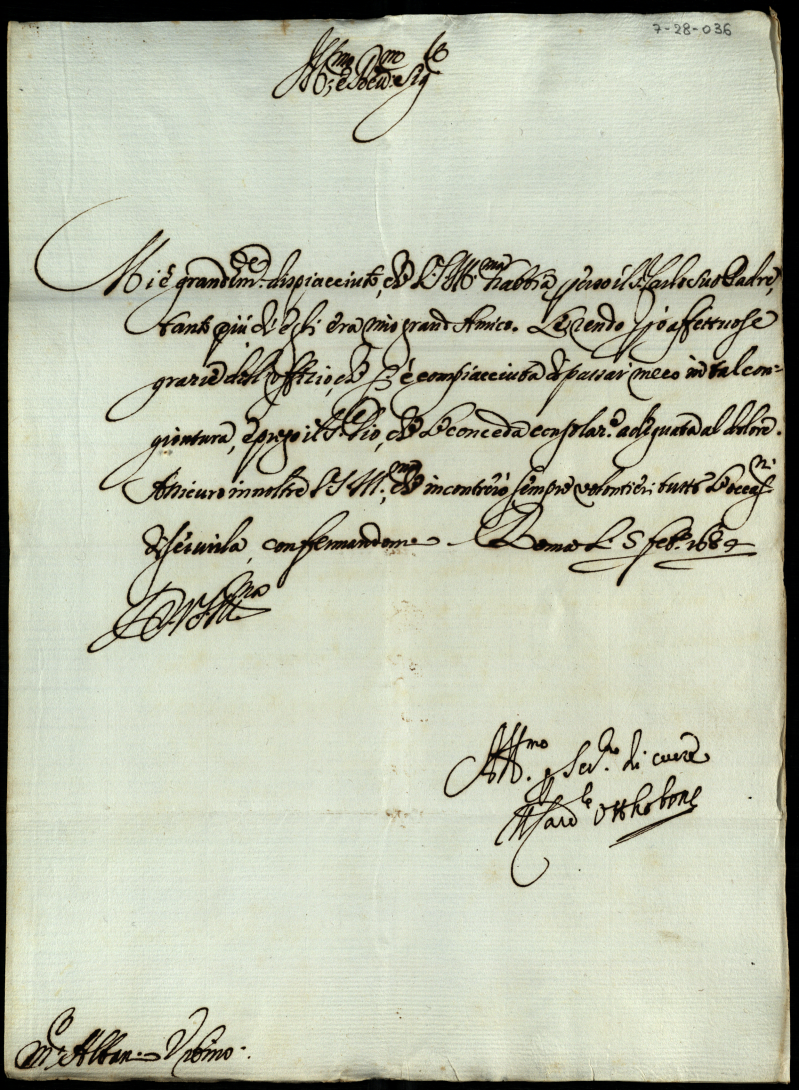 7-28-036
Ill.mo e Rev.mo Sig.re
Mi è grandem.te dispiacciuto, che V.S. Ill.ma habbia perso il S. Carlo suo Padre,
tanto più ch'egli era mio grand'Amico. Le rendo però affettuose
grazie dell'offitio, che si è compiacciuta di passar meco in tal con-
giontura, e prego il S. Dio, che le conceda consolat.e adeguata al dolore.
Assicuro inoltre V.S. Ill.ma, che incontrerò sempre volontieri tutte le occas.ni
di servirla, confermandome Roma li 5 feb.o 1684
D. V.S. Ill.ma
Aff.mo Ser.re di cuore
Il Card.le Otthobone
M.r Alban. Urbino.